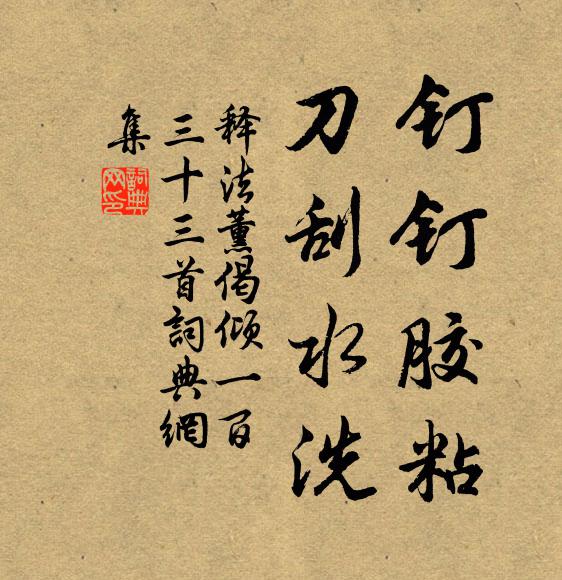 钉钉胶粘
刀刮水洗
释法薰偈倾一百
三十三首詞典網
集
詞典网印